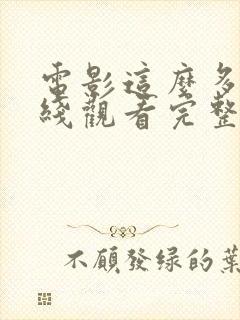 電影這麼多
綫觀看完整
不願發绿的葉